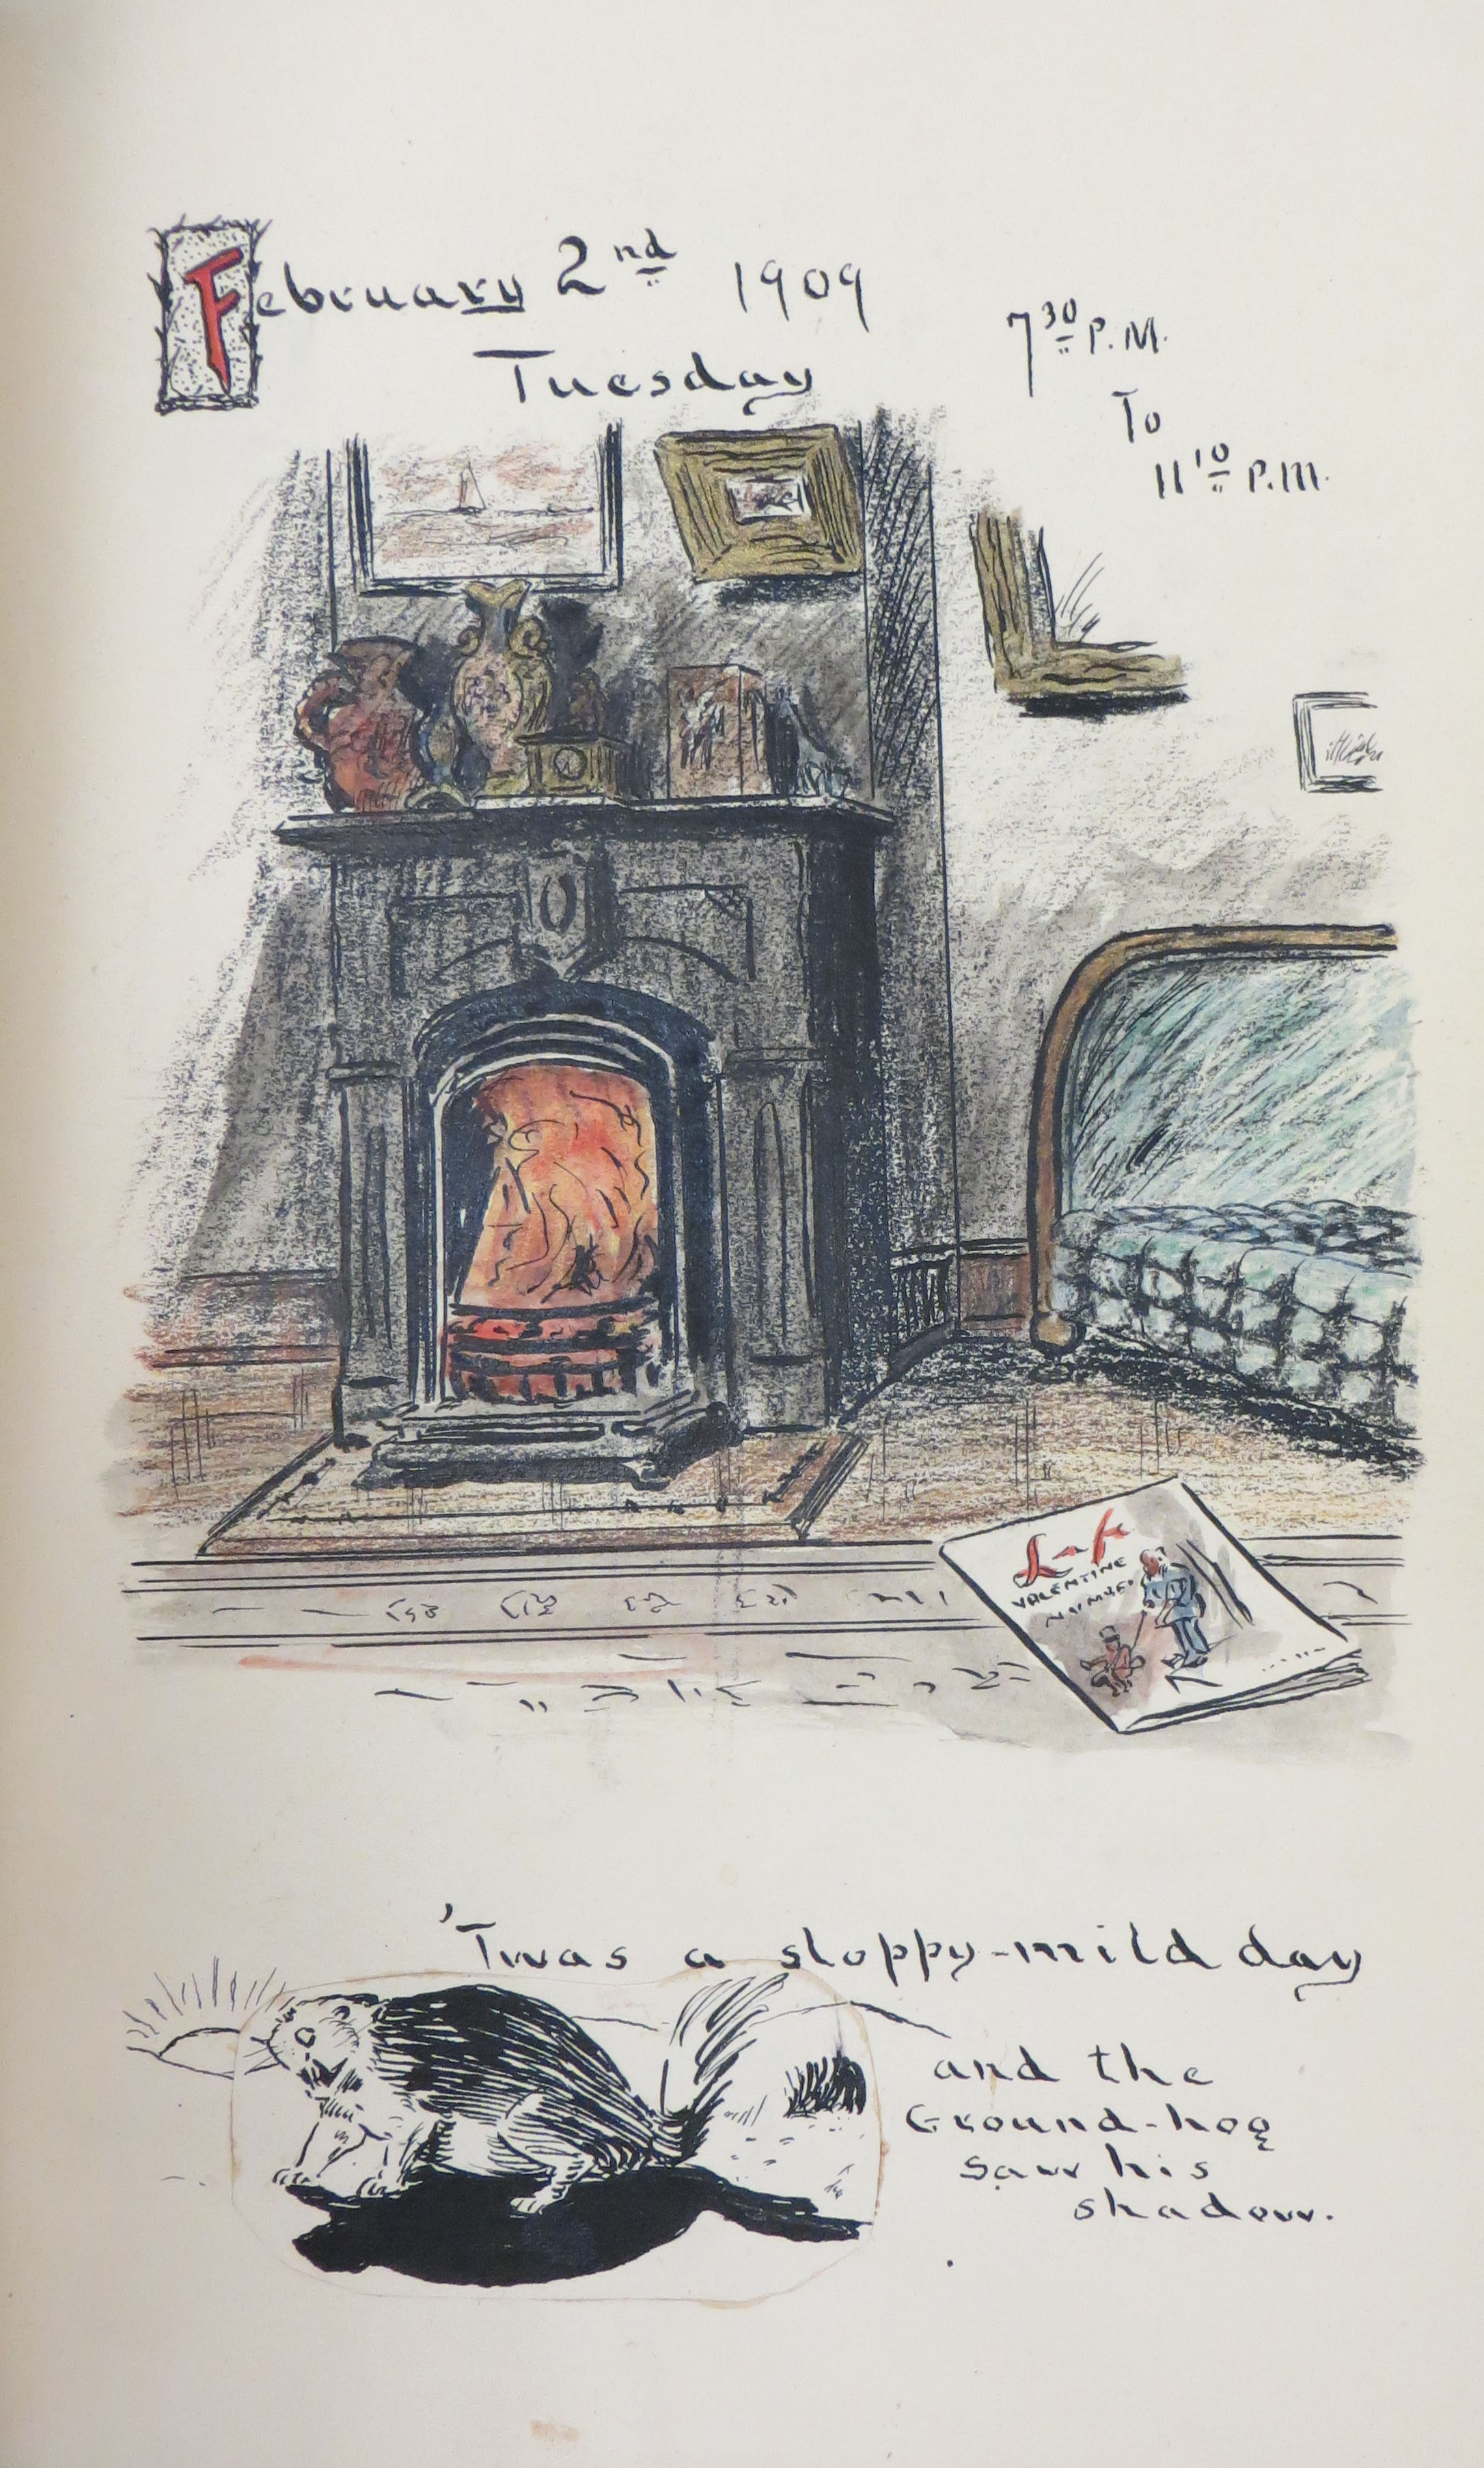 February 2nd 1909
Tuesday
7 30 P.M.
To
11 10 P.M.
VALENTINE
NUMBER
'Twas a sloppy-mild day
and the
Ground-hog
Saw his
shadow.